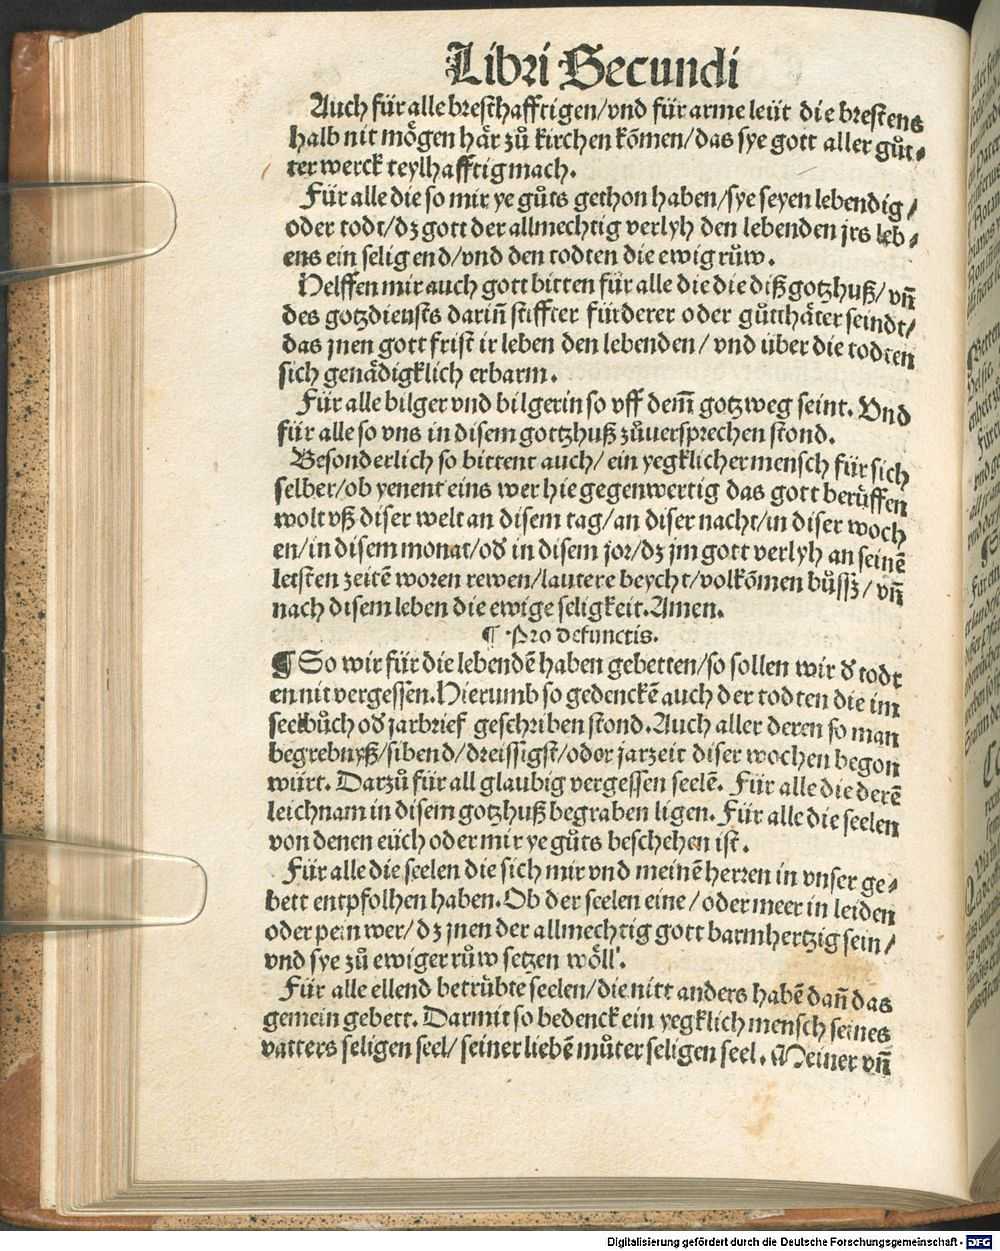 Libri Secundi
Auch für alle bresthafftigen/vnd für arme leüt die brestens
halb nit mögen här zů kirchen kōmen/das sye gott aller gůt⸗
ter werck teylhafftig mach.
Für alle die so mir ye gůts gethon haben/sye seyen lebendig/
oder todt/dz gott der allmechtig verlyh den lebenden jrs leb⸗
ens ein selig end/vnd den todten die ewig růw.
Helffen mir auch gott bitten für alle die die diß gotzhuß/vn̄
des gotzdiensts darin̄ stiffter fürderer oder gůtthäter seindt/
das jnen gott frist ir leben den lebenden/vnd über die todten
sich genädigklich erbarm.
Für alle bilger vnd bilgerin so vff dem̄ gotzweg seint. Vnd
für alle so vns in disem gottzhuß zůuersprechen stond.
Besonderlich so bittent auch/ein yegklicher mensch für sich
selber/ob yenent eins wer hie gegenwertig das gott berůffen
wolt vß diser welt an disem tag/an diser nacht/in diser woch
en/in disem monat/oď in disem jor/dz jm gott verlyh an seinē
letsten zeitē woren rewen/lautere beycht/volkōmen bůssz/vn̄
nach disem leben die ewige seligkeit. Amen.
¶ Pro defunctis.
¶ So wir für die lebendē haben gebetten/so sollen wir ď todt
en nit vergessen. Hierumb so gedenckē auch der todten die im
seelbůch oď jarbrief geschriben stond. Auch aller deren so man
begrebnyß/sibend/dreissigst/oder jarzeit diser wochen begon
würt. Darzů für all glaubig vergessen seelē. Für alle die derē
leichnam in disem gotzhuß begraben ligen. Für alle die seelen
von denen eüch oder mir ye gůts beschehen ist.
Für alle die seelen die sich mir vnd meinē herren in vnser ge⸗
bett entpfolhen haben. Ob der seelen eine/oder meer in leiden
oder pein wer/dz jnen der allmechtig gott barmhertzig sein/
vnd sye zů ewiger růw setzen wöll'.
Für alle ellend betrůbte seelen/die nitt anders habē dan̄ das
gemein gebett. Darmit so bedenck ein yegklich mensch seines
vatters seligen seel/seiner liebē můter seligen seel. Meiner vn̄
Digitalisierung gefördert durch die Deutsche Forschungsgemeinschaft - DFG